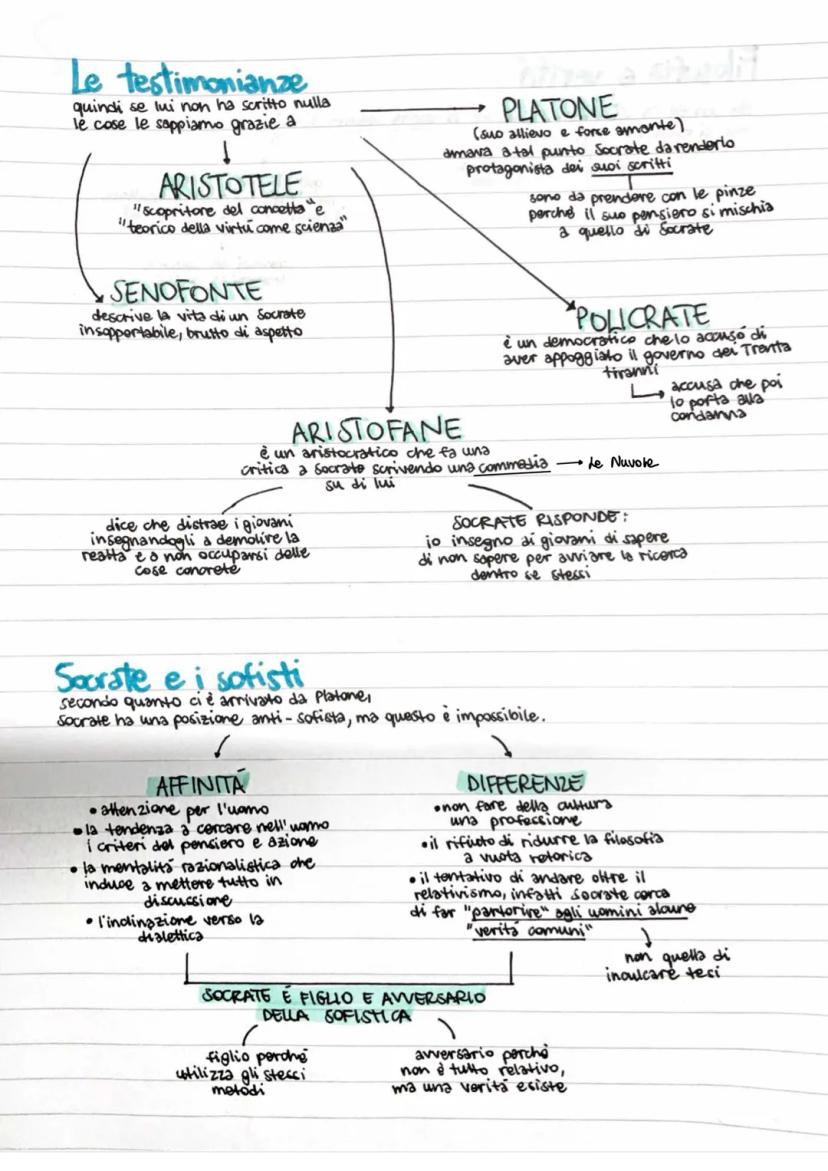 Le testimonianze
quindi se lui non ha scritto nulla
le cose le sappiamo grazie a
PLATONE
(suo allievo e forse amante)
amava a tal punto Socrate da renderlo
protagonista dei suoi scritti
sono da prendere con le pinze
perché il suo pensiero si mischia
a quello di Socrate
ARISTOTELE
"scopritore del concetto" e
"teorico della virtú come scienza"
SENOFONTE
descrive la vita di un Socrate
insopportabile, brutto di aspetto
POLICRATE
è un democratico che lo accusó di
aver appoggiato il governo dei Trenta
tiranni
accusa che poi
lo porta alla
condanna
ARISTOFANE
è un aristocratico che fa una
critica a Socrate scrivendo una commedia → Le Nuvole
su di lui
dice che distrae i giovani
insegnandogli a demolire la
realtá e a non occuparsi delle
cose concrete
SOCRATE RISPONDE:
io insegno ai giovani di sapere
di non sapere per avviare la ricerca
dentro se stessi
Socrate e i sofisti
secondo quanto ci è arrivato da Platone,
Socrate ha una posizione anti-sofista, ma questo è impossibile.
AFFINITÁ
• attenzione per l'uomo
• la tendenza a cercare nell'uomo
i criteri del pensiero e azione
• la mentalitá razionalistica che
induce a mettere tutto in
discussione
• l'inclinazione verso la
dialettica
DIFFERENZE
• non fare della cultura
una professione
• il rifiuto di ridurre la filosofia
a vuota retorica
• il tentativo di andare oltre il
relativismo, infatti Socrate cerca
di far "partorire" agli uomini alcune
"veritá comuni"
non quella di
inculcare tesi
SOCRATE É FIGLIO E AVVERSARIO
DELLA SOFISTICA
figlio perché
utilizza gli stessi
metodi
avversario perché
non è tutto relativo,
ma una veritá esiste